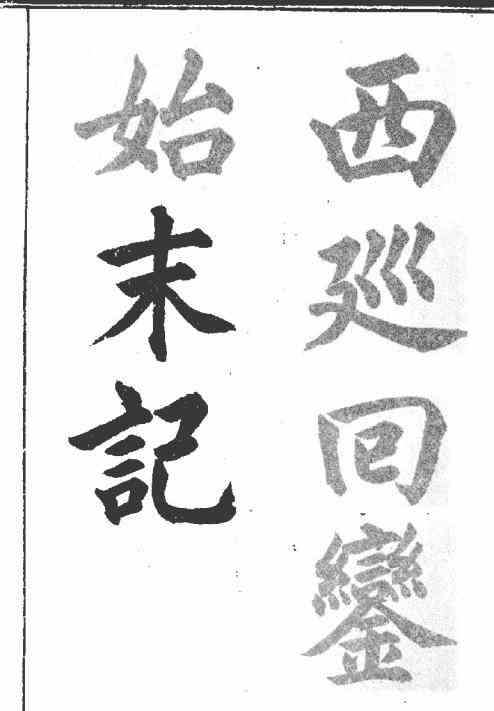 西廵回鑾
始末記